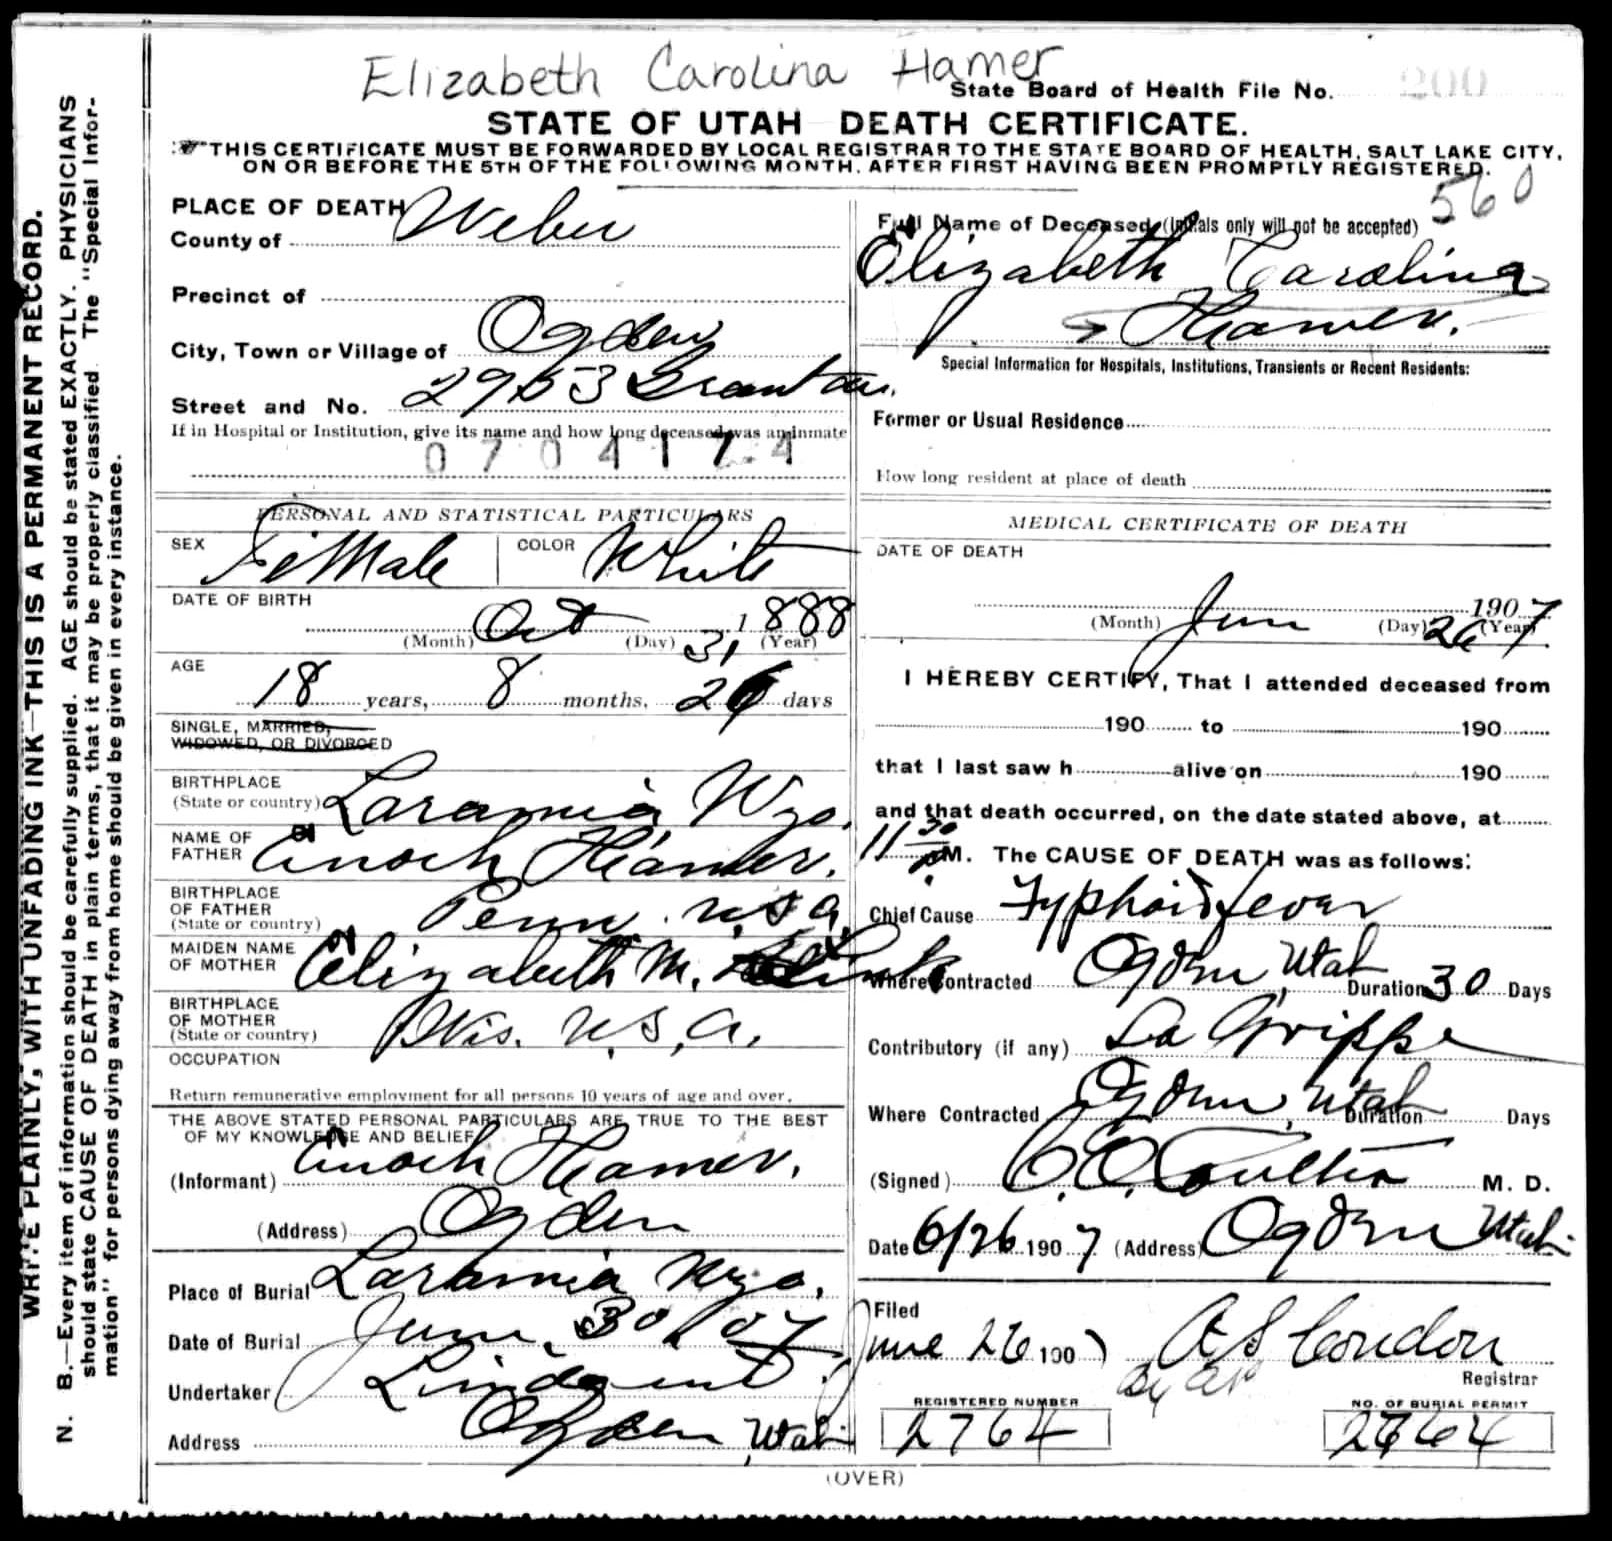 Elizabeth Carolina Hamer
State Board of Health File No. 200
STATE OF UTAH DEATH CERTIFICATE.
THIS CERTIFICATE MUST BE FORWARDED BY LOCAL REGISTRAR TO THE STATE BOARD OF HEALTH, SALT LAKE CITY,
ON OR BEFORE THE 5TH OF THE FOLLOWING MONTH, AFTER FIRST HAVING BEEN PROMPTLY REGISTERED.
560
WRITE PLAINLY, WITH UNFADING INK—THIS IS A PERMANENT RECORD.
N. B.—Every item of information should be carefully supplied. AGE should be stated EXACTLY. PHYSICIANS
should state CAUSE OF DEATH in plain terms, that it may be properly classified. The "Special Infor-
mation" for persons dying away from home should be given in every instance.
PLACE OF DEATH
County of Weber
Precinct of
City, Town or Village of Ogden
Street and No. 2953 Grant av.
If in Hospital or Institution, give its name and how long deceased was an inmate
0704174
PERSONAL AND STATISTICAL PARTICULARS
SEX FeMale COLOR White
DATE OF BIRTH
Oct 31 1888
(Month) (Day) (Year)
AGE
18 years, 8 months, 26 days
SINGLE, MARRIED,
WIDOWED, OR DIVORCED
BIRTHPLACE
(State or country) Laramia Wyo.
NAME OF
FATHER Enoch Hamer.
BIRTHPLACE
OF FATHER
(State or country) Penn. U.S.A.
MAIDEN NAME
OF MOTHER Elizabeth M.
BIRTHPLACE
OF MOTHER
(State or country) Wis. U.S.A.
OCCUPATION
Return remunerative employment for all persons 10 years of age and over.
THE ABOVE STATED PERSONAL PARTICULARS ARE TRUE TO THE BEST
OF MY KNOWLEDGE AND BELIEF
(Informant) Enoch Hamer.
(Address) Ogden
Place of Burial Laramia Wyo.
Date of Burial June 30/07
Undertaker Lindquist
Address Ogden, Utah
Full Name of Deceased (Initials only will not be accepted)
Elizabeth Carolina
Hamer.
Special Information for Hospitals, Institutions, Transients or Recent Residents:
Former or Usual Residence
How long resident at place of death
MEDICAL CERTIFICATE OF DEATH
DATE OF DEATH
Jun 26 1907
(Month) (Day) (Year)
I HEREBY CERTIFY, That I attended deceased from
190 to 190
that I last saw h alive on 190
and that death occurred, on the date stated above, at
11 30 M. The CAUSE OF DEATH was as follows:
Chief Cause Typhoid fever
Where Contracted Ogden, Utah Duration 30 Days
Contributory (if any) La Grippe
Where Contracted Ogden, Utah Duration Days
(Signed) C.C. Coulter M. D.
Date 6/26 1907 (Address) Ogden Utah
Filed
June 26 1907 A S Condon
By
Registrar
REGISTERED NUMBER
2764
NO. OF BURIAL PERMIT
2764
(OVER)